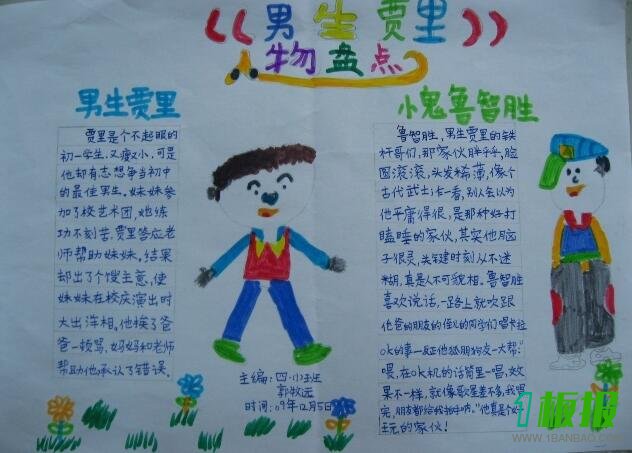 《男生贾里》
人物盘点
男生贾里
贾里是个不起眼的
初一学生,又瘦又小,可是
他却有志想争当初中
的最佳男生。妹妹参
加了校艺术团,她练
功不刻苦,贾里答应老
师帮助妹妹,结果
却出了个馊主意,使
妹妹在校庆演出时
大出洋相。他挨了爸
爸一顿骂,妈妈和老师
帮助他,承认了错误。
小鬼鲁智胜
鲁智胜,男生贾里的铁
杆哥们,那家伙胖乎乎,脸
圆滚滚,头发稀薄,像个
古代武士,乍一看,别人会以为
他平庸得很,是那种好打
瞌睡的家伙,其实他脑
子狠灵,关键时刻从不迷
糊,真是人不可貌相。鲁智胜
喜欢说话,一路上就吹跟
他爸的朋友的侄儿的同学们唱卡拉
ok的事—反正他狐朋狗友一大帮:“
喂,在ok机的话筒里一唱,效
果不一样,就像歌星差不多,我唱
完,朋友都给我拍手呐。”他真是个好
玩的家伙!
主编:四·(1)班
郭牧远
时间:09年12月5日
1板报
WWW.1BANBAO.COM